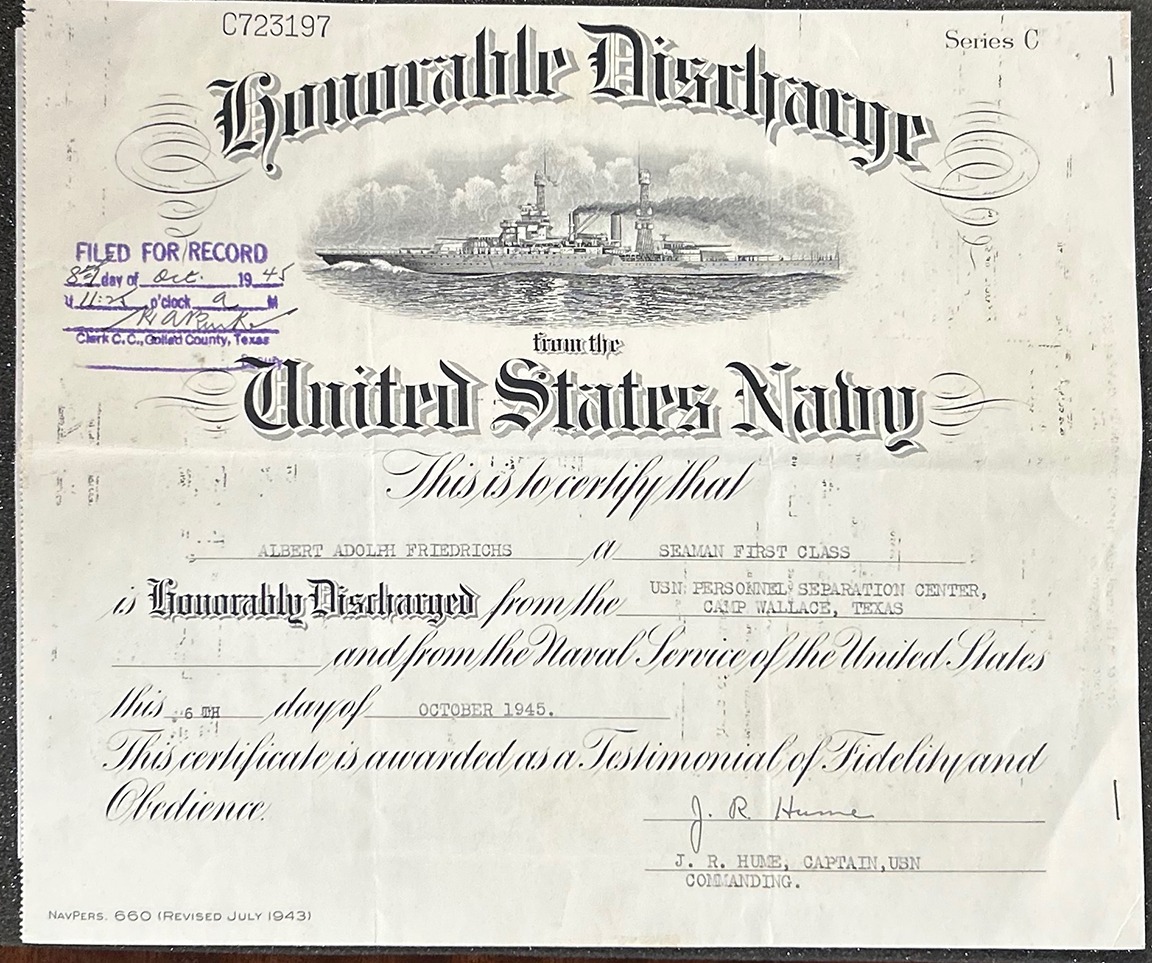 C723197
Series C
Honorable Discharge
FILED FOR RECORD
8th day of Oct. 1945
11:25 o'clock a M
Clerk C. C., Goliad County, Texas
from the
United States Navy
This is to certify that
ALBERT ADOLPH FRIEDRICHS a SEAMAN FIRST CLASS
is Honorably Discharged from the USN PERSONNEL SEPARATION CENTER,
CAMP WALLACE, TEXAS
and from the Naval Service of the United States
this 6 TH day of OCTOBER 1945.
This certificate is awarded as a Testimonial of Fidelity and
Obedience.
J. R. Hume
J. R. HUME, CAPTAIN,USN
COMMANDING.
NAVPERS. 660 (REVISED JULY 1943)